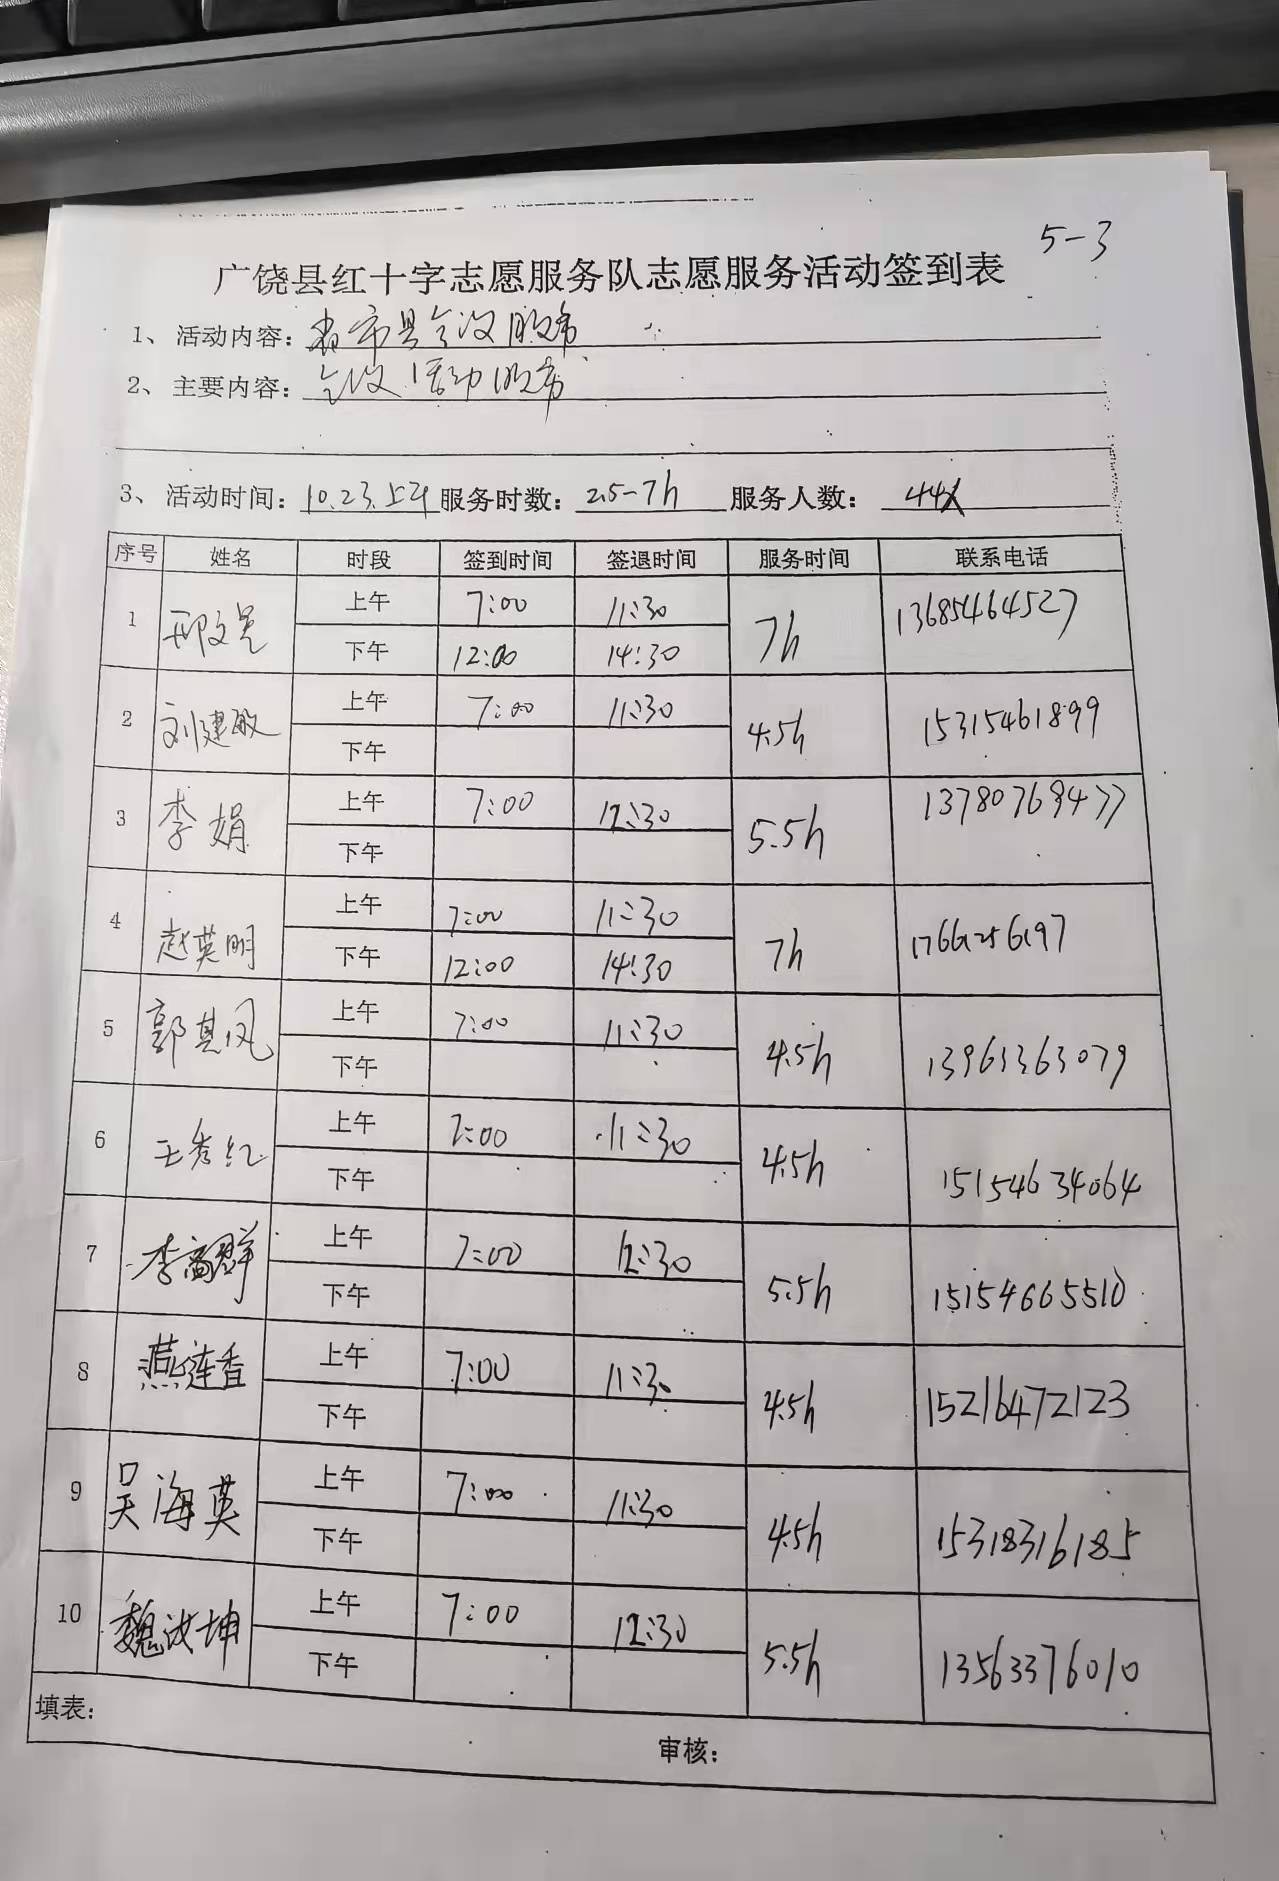 5-3
广饶县红十字志愿服务队志愿服务活动签到表
1、活动内容：省市县会议服务
2、主要内容：会议活动服务
3、活动时间：10.23.上午 服务时数：2.5-7h 服务人数：44人
序号 姓名 时段 签到时间 签退时间 服务时间 联系电话
1 邢文 上午 7:00 11:30 7h 13685464527
下午 12:00 14:30
2 刘建敏 上午 7:00 11:30 4.5h 15315461899
下午
3 李娟 上午 7:00 12:30 5.5h 13780769477
下午
4 赵英明 上午 7:00 11:30 7h
下午 12:00 14:30
5 郭其凤 上午 7:00 11:30 4.5h 13963363079
下午
6 王秀红 上午 7:00 11:30 4.5h 15154634064
下午
7 李高群 上午 7:00 12:30 5.5h 15154665510
下午
8 燕连香 上午 7:00 11:30 4.5h 15216472123
下午
9 吴海英 上午 7:00 11:30 4.5h 15318316185
下午
10 魏汝坤 上午 7:00 12:30 5.5h 13563376010
下午
填表：
审核：